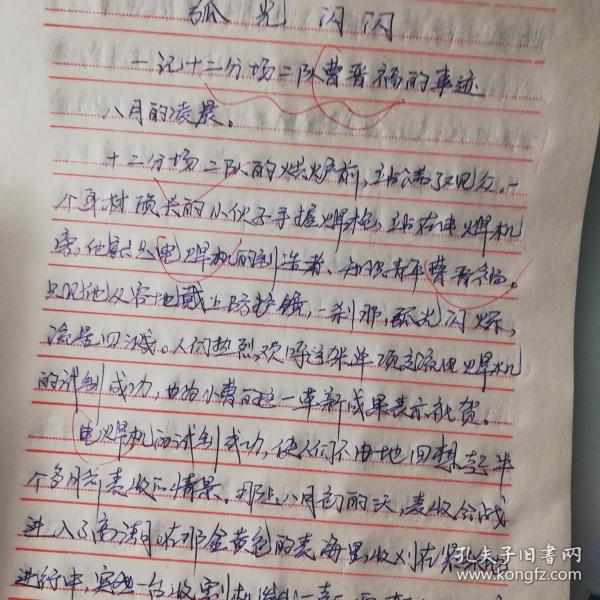 弧光闪闪
一记十二分场二队曹晋福的事迹
八月的凌晨。
十二分场二队的烘炉前，站满了观众。一
个身材颀长的小伙子手握焊枪，站在电焊机
旁，他就是电焊机的制造者、知识青年曹晋福。
只见他从容地戴上防护镜，一刹那，弧光闪烁，
流星四溅。人们热烈欢呼这架单项交流电焊机
的试制成功，也为小曹的这一革新成果表示祝贺。
电焊机的试制成功，使人们不由地回想起半
个多月前麦收的情景。那是八月初的天，麦收会战
进入了高潮，在那金黄色的麦海里，收刈在紧张地
进行中，突然一台收割机发出
孔夫子旧书网
www.kongfz.com